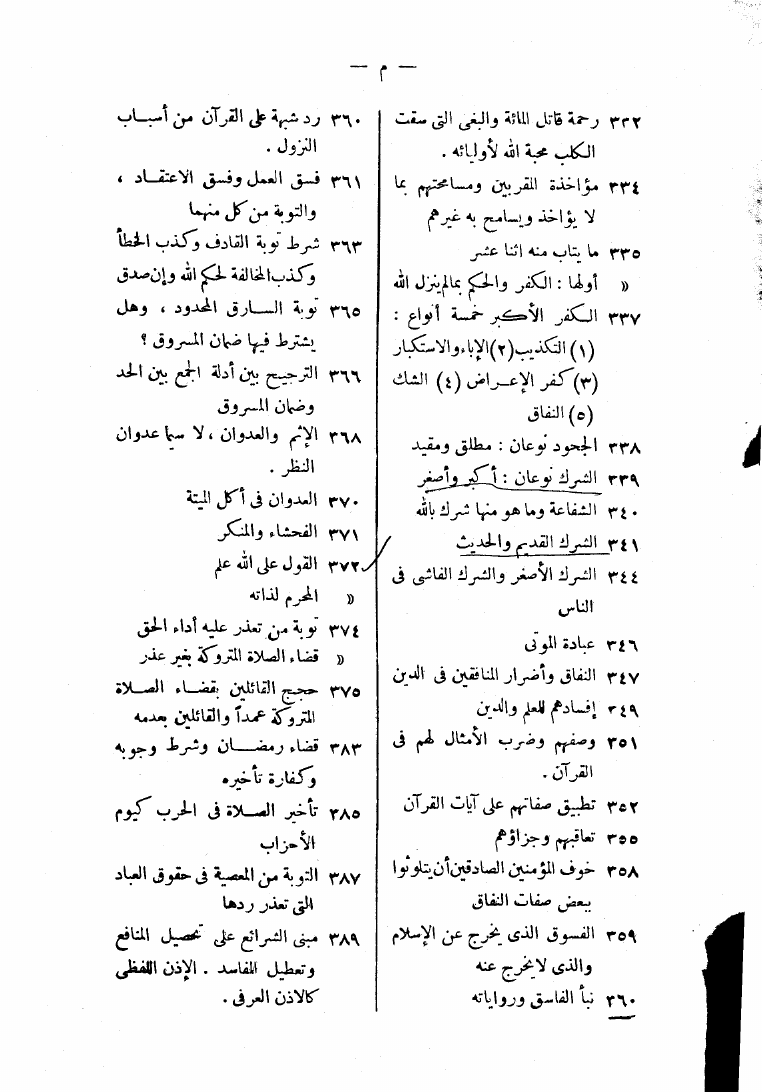 — م —
٣٣٢ رحمة قاتل المائة والبغى التى سقت
الكلب محبة الله لأوليائه .
٣٣٤ مؤاخذة المقربين ومسامحتهم بما
لا يؤاخذ ويسامح به غيرهم
٣٣٥ ما يتاب منه اثنا عشر
« أولها : الكفر والحكم بمالم ينزل الله
٣٣٧ الكفر الأكبر خمسة أنواع :
(١) التكذيب (٢) الإباء والاستكبار
(٣) كفر الإعراض (٤) الشك
(٥) النفاق
٣٣٨ الجحود نوعان : مطلق ومقيد
٣٣٩ الشرك نوعان : أكبر وأصغر
٣٤٠ الشفاعة وما هو منها شرك بالله
٣٤١ الشرك القديم والحديث
٣٤٤ الشرك الأصغر والشرك الفاشى فى
الناس
٣٤٦ عبادة الموتى
٣٤٧ النفاق وأضرار المنافقين فى الدين
٣٤٩ إفسادهم للعلم والدين
٣٥١ وصفهم وضرب الأمثال لهم فى
القرآن .
٣٥٢ تطبيق صفاتهم على آيات القرآن
٣٥٥ تعاقبهم وجزاؤهم
٣٥٨ خوف المؤمنين الصادقين أن يتلوثوا
ببعض صفات النفاق
٣٥٩ الفسوق الذى يخرج عن الإسلام
والذى لا يخرج عنه
٣٦٠ نبأ الفاسق ورواياته
٣٦٠ رد شبهة على القرآن من أسباب
النزول .
٣٦١ فسق العمل وفسق الاعتقاد ،
والتوبة من كل منهما
٣٦٣ شرط توبة القاذف وكذب الخطأ
وكذب المخالفة لحكم الله وإن صدق
٣٦٥ توبة السارق المحدود ، وهل
يشترط فيها ضمان المسروق ؟
٣٦٦ الترجيح بين أدلة الجمع بين الحد
وضمان المسروق
٣٦٨ الإثم والعدوان ، لا سيما عدوان
النظر .
٣٧٠ العدوان فى أكل الميتة
٣٧١ الفحشاء والمنكر
٣٧٢ القول على الله علم
« المحرم لذاته
٣٧٤ توبة من تعذر عليه أداء الحق
« قضاء الصلاة المتروكة بغير عذر
٣٧٥ حجج القائلين بقضاء الصلاة
المتروكة عمداً والقائلين بعدمه
٣٨٣ قضاء رمضان وشرط وجوبه
وكفارة تأخيره
٣٨٥ تأخير الصلاة فى الحرب كيوم
الأحزاب
٣٨٧ التوبة من المعصية فى حقوق العباد
التى تعذر ردها
٣٨٩ مبنى الشرائع على تحصيل المنافع
وتعطيل المفاسد . الإذن اللفظى
كالاذن العرفى .